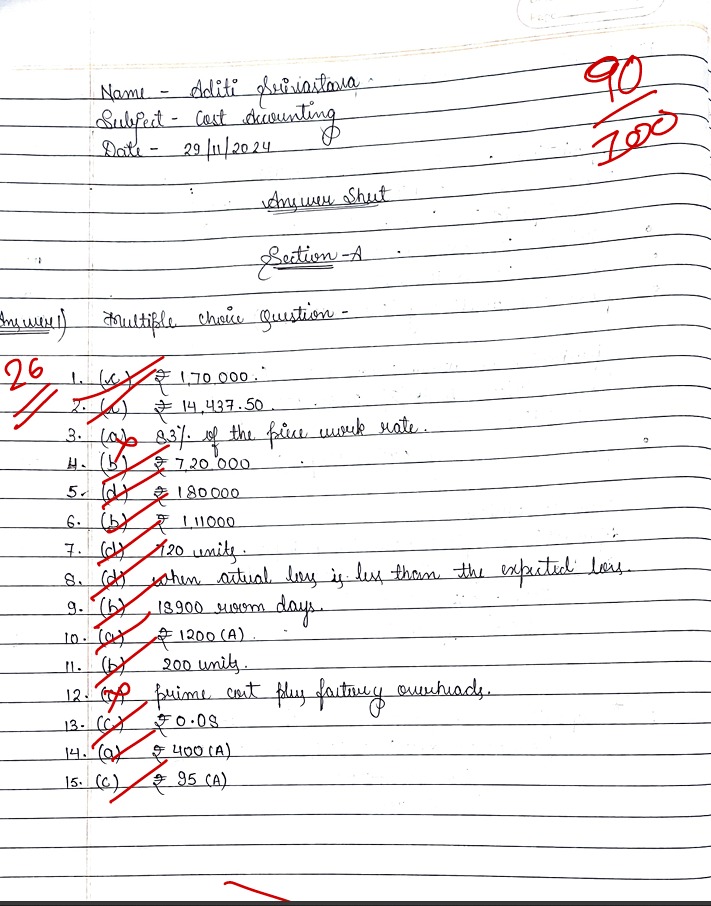 Name - Aditi Srivastava
90
Subject - Cost Accounting
100
Date - 29/11/2024
Answer Sheet
Section - A
Answer 1) Multiple choice Question -
26
1. (c) ₹ 1,70,000.
2. ₹ 14,437.50
3. (a) 83% of the piece work rate.
4. (b) ₹ 7,20,000
5. (d) ₹ 180000
6. (b) ₹ 1,11000
7. (d) 720 units.
8. (d) when actual loss is less than the expected loss.
9. (b) 18900 room days.
10. (a) ₹ 1200 (A)
11. (b) 200 units.
12. prime cost plus factory overheads.
13. (c) ₹ 0.08
14. (a) ₹ 400 (A)
15. (c) ₹ 95 (A)